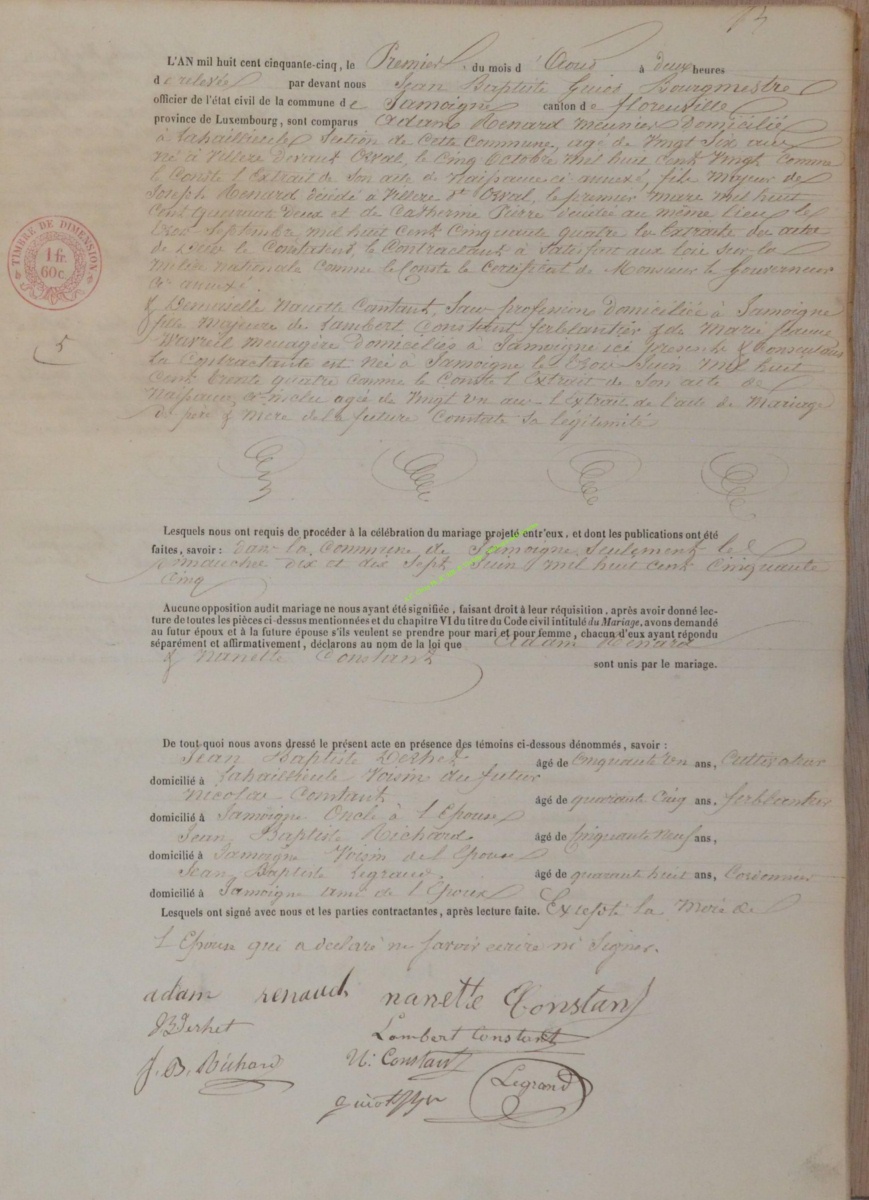 L'AN mil huit cent cinquante-cinq, le Premier, du mois d'Aout à deux heures
de relevée par devant nous Jean Baptiste Guiot Bourgmestre
officier de l'état civil de la commune de Jamoigne canton de florenville
province de Luxembourg, sont comparus Adam Renard meunier Domicilié
à Section de Cette Commune, agé de Vingt Six ans
né à Villers Devant Orval, le Cinq Octobre Mil huit Cent Vingt Comme
le Conste l'Extrait de Son acte de Naissance ci annexé, fils Majeur de
Joseph Renard Décédé à Villers dt Orval, le premier Mars Mil huit
Cent Quarante Deux et de Catherine Pierre décédée au même lieu le
Trois Septembre Mil huit Cent Cinquante quatre les Extraits des actes
de Décès le Constatent, le Contractant à Satisfait aux lois Sur la
Milice Nationale Comme le Conste le Certificat de Monsieur le Gouverneur
annexé
& Demoiselle Nanette Constant, Sans profession Domiciliée à Jamoigne
fille Majeure de Lambert Constant ferblantier & de Marie
menagère Domiciliés à Jamoigne ici présents & Consentants
la Contractante est Née à Jamoigne le Trois Juin Mil huit
Cent trente quatre Comme le Conste l'Extrait de Son acte de
Naissance agée de Vingt Un ans l'Extrait de l'acte de Mariage
de père & Mère de la future Constate Sa légitimité
Lesquels nous ont requis de procéder à la célébration du mariage projeté entr'eux, et dont les publications ont été
faites, savoir: Dans la Commune de Jamoigne Seulement le
Dimanche Dix et dix Sept Juin Mil huit Cent Cinquante
Cinq
Aucune opposition audit mariage ne nous ayant été signifiée, faisant droit à leur réquisition, après avoir donné lec-
ture de toutes les pièces ci-dessus mentionnées et du chapitre VI du titre du Code civil intitulé du Mariage, avons demandé
au futur époux et à la future épouse s'ils veulent se prendre pour mari et pour femme, chacun d'eux ayant répondu
séparément et affirmativement, déclarons au nom de la loi que Adam Renard
& Nanette Constant sont unis par le mariage.
De tout quoi nous avons dressé le présent acte en présence des témoins ci-dessous dénommés, savoir:
Jean Baptiste Derhet âgé de Cinquante Un ans, Cultivateur
domicilié à Voisin du futur
Nicolas Constant âgé de quarante Cinq ans, ferblantier
domicilié à Jamoigne Oncle à l'Epouse
Jean Baptiste Richard âgé de Cinquante Neuf ans,
domicilié à Jamoigne Voisin de l'Epouse
Jean Baptiste Legrand âgé de quarante huit ans, Cordonnier
domicilié à Jamoigne ami de l'Epoux
Lesquels ont signé avec nous et les parties contractantes, après lecture faite. Excepté la Mère de
l'Epouse qui a déclaré ne Savoir écrire ni Signer.
adam renaud nanette Constant
JBDerhet Lambert Constant
J. B. Richard N. Constant Legrand
guiot
TIMBRE DE DIMENSION
1 fr.
60 c.
5